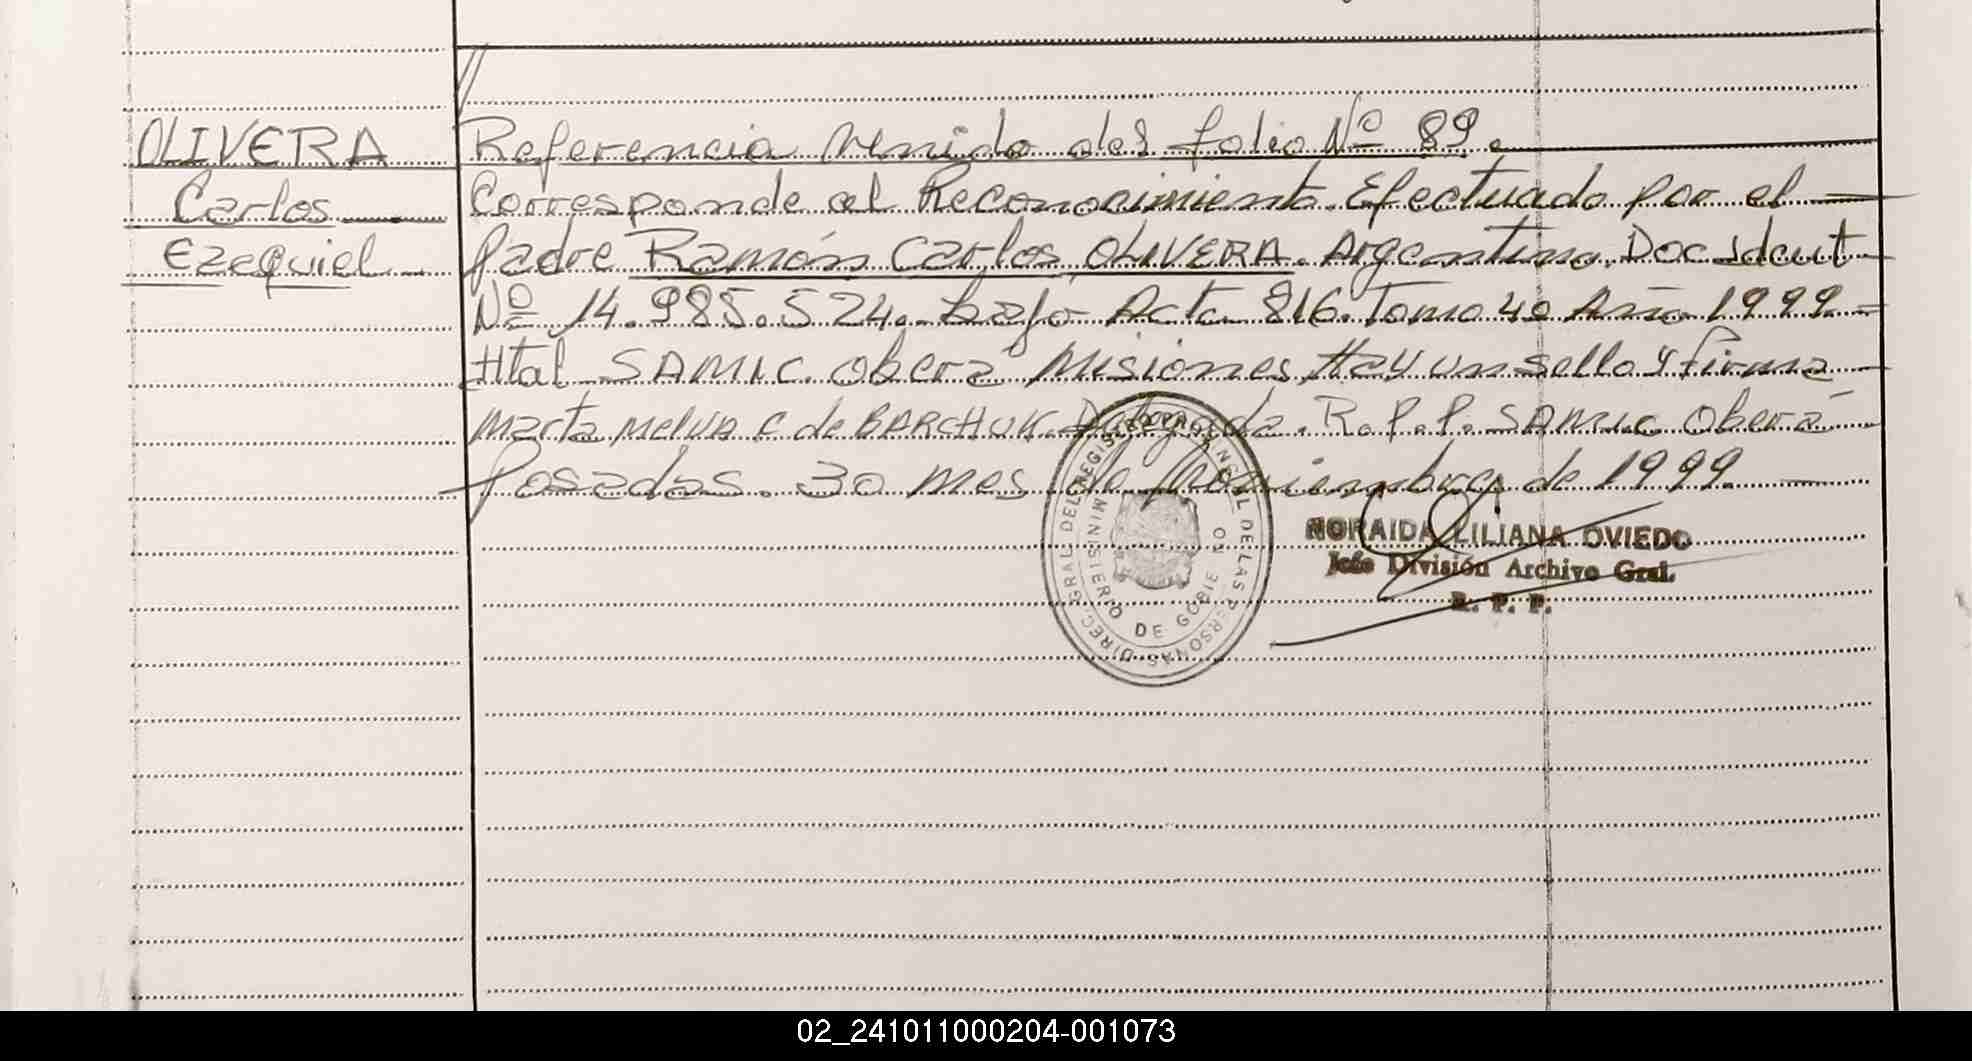 OLIVERA
Carlos
Ezequiel
Referencia Venida del folio Nº 89.
Corresponde al Reconocimiento Efectuado por el
Padre Ramón Carlos OLIVERA. Argentino. Doc Ident
Nº 14.985.524. bajo Acta 816. Tomo 4º Año 1999.
Htal SAMIC. Oberá Misiones. Hay un sello y firma
Marta Melva C de BARCHUK. Delegada. R.P.P. SAMIC Oberá
Posadas. 30 mes de Noviembre de 1999
DIREC. GRAL DEL REGISTRO PROVINCIAL DE LAS PERSONAS
MINISTERIO DE GOBIERNO
NORAIDA LILIANA OVIEDO
Jefe División Archivo Gral.
R. P. P.
02_241011000204-001073